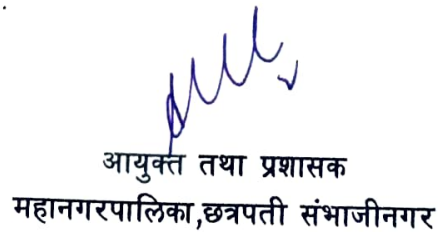 आयुक्त तथा प्रशासक
महानगरपालिका,छत्रपती संभाजीनगर